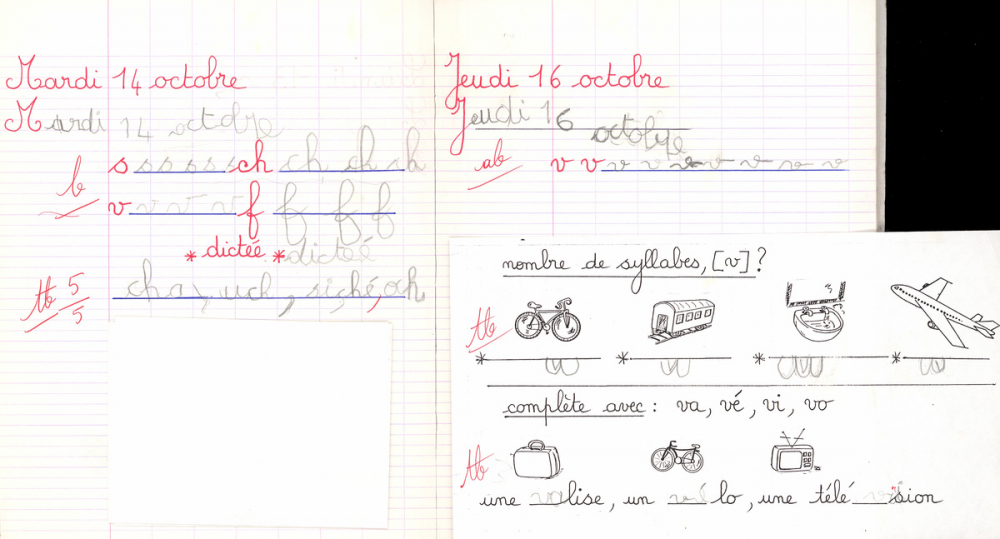 Mardi 14 octobre
Mardi 14 octobre
b s s s s s s ch ch ch ch
v v v v f f f f
* dictée * dictée
tb 5/5 cha, uch, siché, och
Jeudi 16 octobre
Jeudi 16 octobre
ab v v v v v v v v v
nombre de syllabes, [v] ?
tb
* * * *
complète avec : va, vé, vi, vo
tb
une valise, un vélo, une télévision